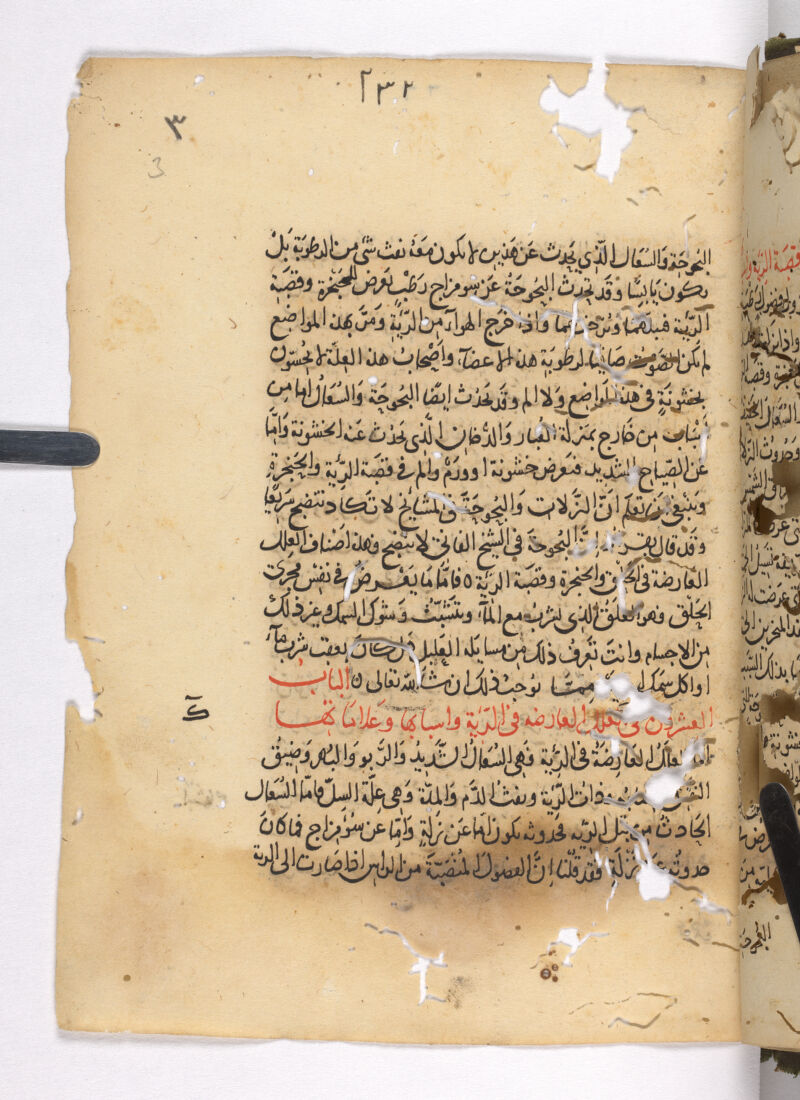 ٢٣٢
٣
3
البحوحة والسعال الذي يحدث عن هذين لا يكون معه نفث شي من الرطوبة بل
يكون يابسا وقد تحدث البحوحة عن سو مزاج رطب يعرض للحنجرة وقصبة
الرئة فيبلهما ويرخيهما واذا خرج الهواء من الرئة ومر بهذه المواضع
لم يكن الصوت صافيا لرطوبة هذه الاعضاء واصحاب هذه العلة لا يحسون
بخشونة في هذه المواضع ولا الم وقد تحدث ايضا البحوحة والسعال اما من
اسباب من خارج بمنزلة الغبار والدخان الذي تحدث عنه الخشونة واما
عن الصياح الشديد فتعرض خشونة او ورم والم في قصبة الرئة والحنجرة
وينبغي ان تعلم ان النزلات والبحوحة في المشايخ لا تكاد تنضج سريعا
وقد قال بقراط ان البحوحة في الشيخ الفاني لا تنضج وهذه اصناف العلل
العارضة في الحلق والحنجرة وقصبة الرئة ٥ فاما ما يعرض في نفس مجرى
الحلق فهو العلق الذي يشرب مع الماء ويتشبث وشوك السمك وغير ذلك
من الاجسام وانت تعرف ذلك من مسايله العليل هل كان بعقب شرب ماء
او اكل سمك مما يوجب ذلك ان شا الله تعالى ٥ الباب
العشرون في العلل العارضه في الرية واسبابها وعلاماتها
اما العلل العارضة في الرئة فهي السعال الشديد والربو والبهر وضيق
النفس وذات الرئة ونفث الدم والمدة وهي علة السل فاما السعال
الحادث من قبل الرئه فحدوثه يكون اما عن نزلة واما عن سو مزاج فما كان
حدوثه عن نزلة فقد قلنا ان الفضول المنصبة من الراس اذا صارت الى الرئة
ك